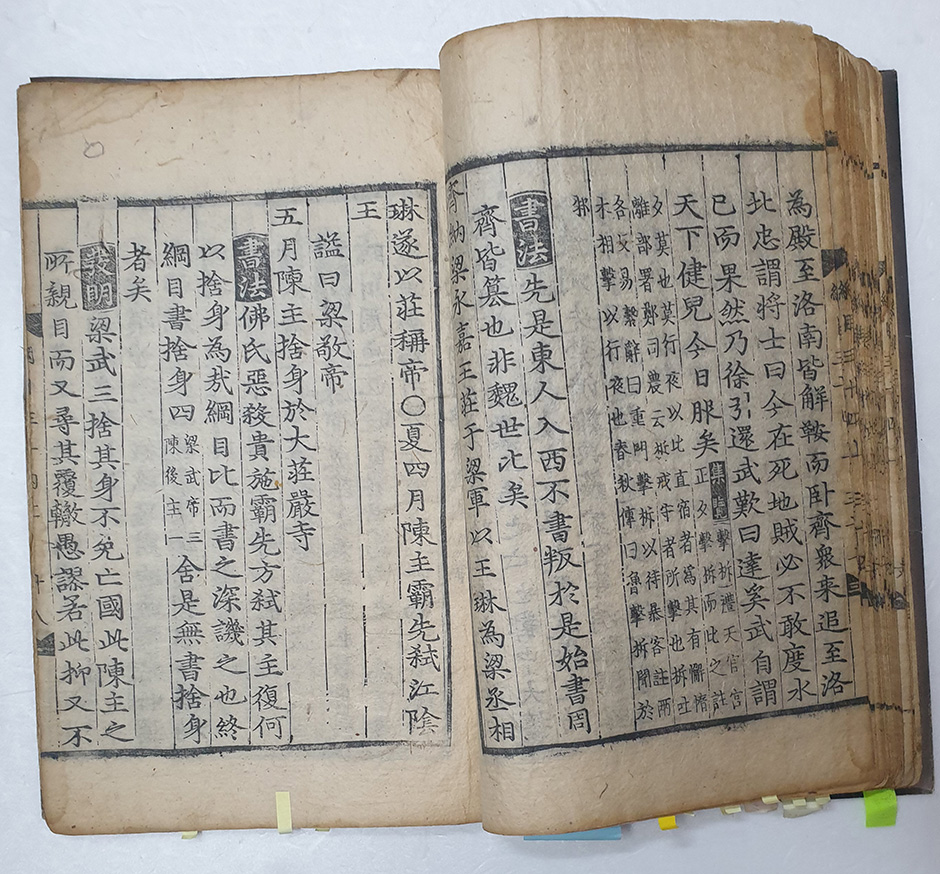 為殿至洛南皆解鞍而卧齊衆来追至洛
北忠謂將士曰今在死地賊必不敢度水
已而果然乃徐引還武歎曰達奚武自謂
天下健児今日服矣集覽擊柝禮天官宮
正夕擊柝而比之註
夕莫也莫行夜以比直宿者為其有懈惰
離部署鄭司農云柝戒守者所擊也柝社
各反易繫辭曰重門擊柝以待暴客註兩
木相擊以行夜也春秋傳曰魯擊柝聞於
邾
書法先是東人入西不書叛於是始書周
齊皆簒也非魏世比矣
齊納梁永嘉王荘于梁軍以王琳為梁丞相
琳遂以荘稱帝〇夏四月陳主霸先弑江陰
王
謚曰梁敬帝
五月陳主捨身於大荘嚴寺
書法佛氏惡殺貴施霸先方弑其主復何
以捨身為㢤綱目比而書之深譏之也終
綱目書捨身四梁武帝三陳後主一舍是無書捨身
者矣
發明梁武三捨其身不免亡國此陳主之
所親目而又尋其覆轍愚謬若此抑又不